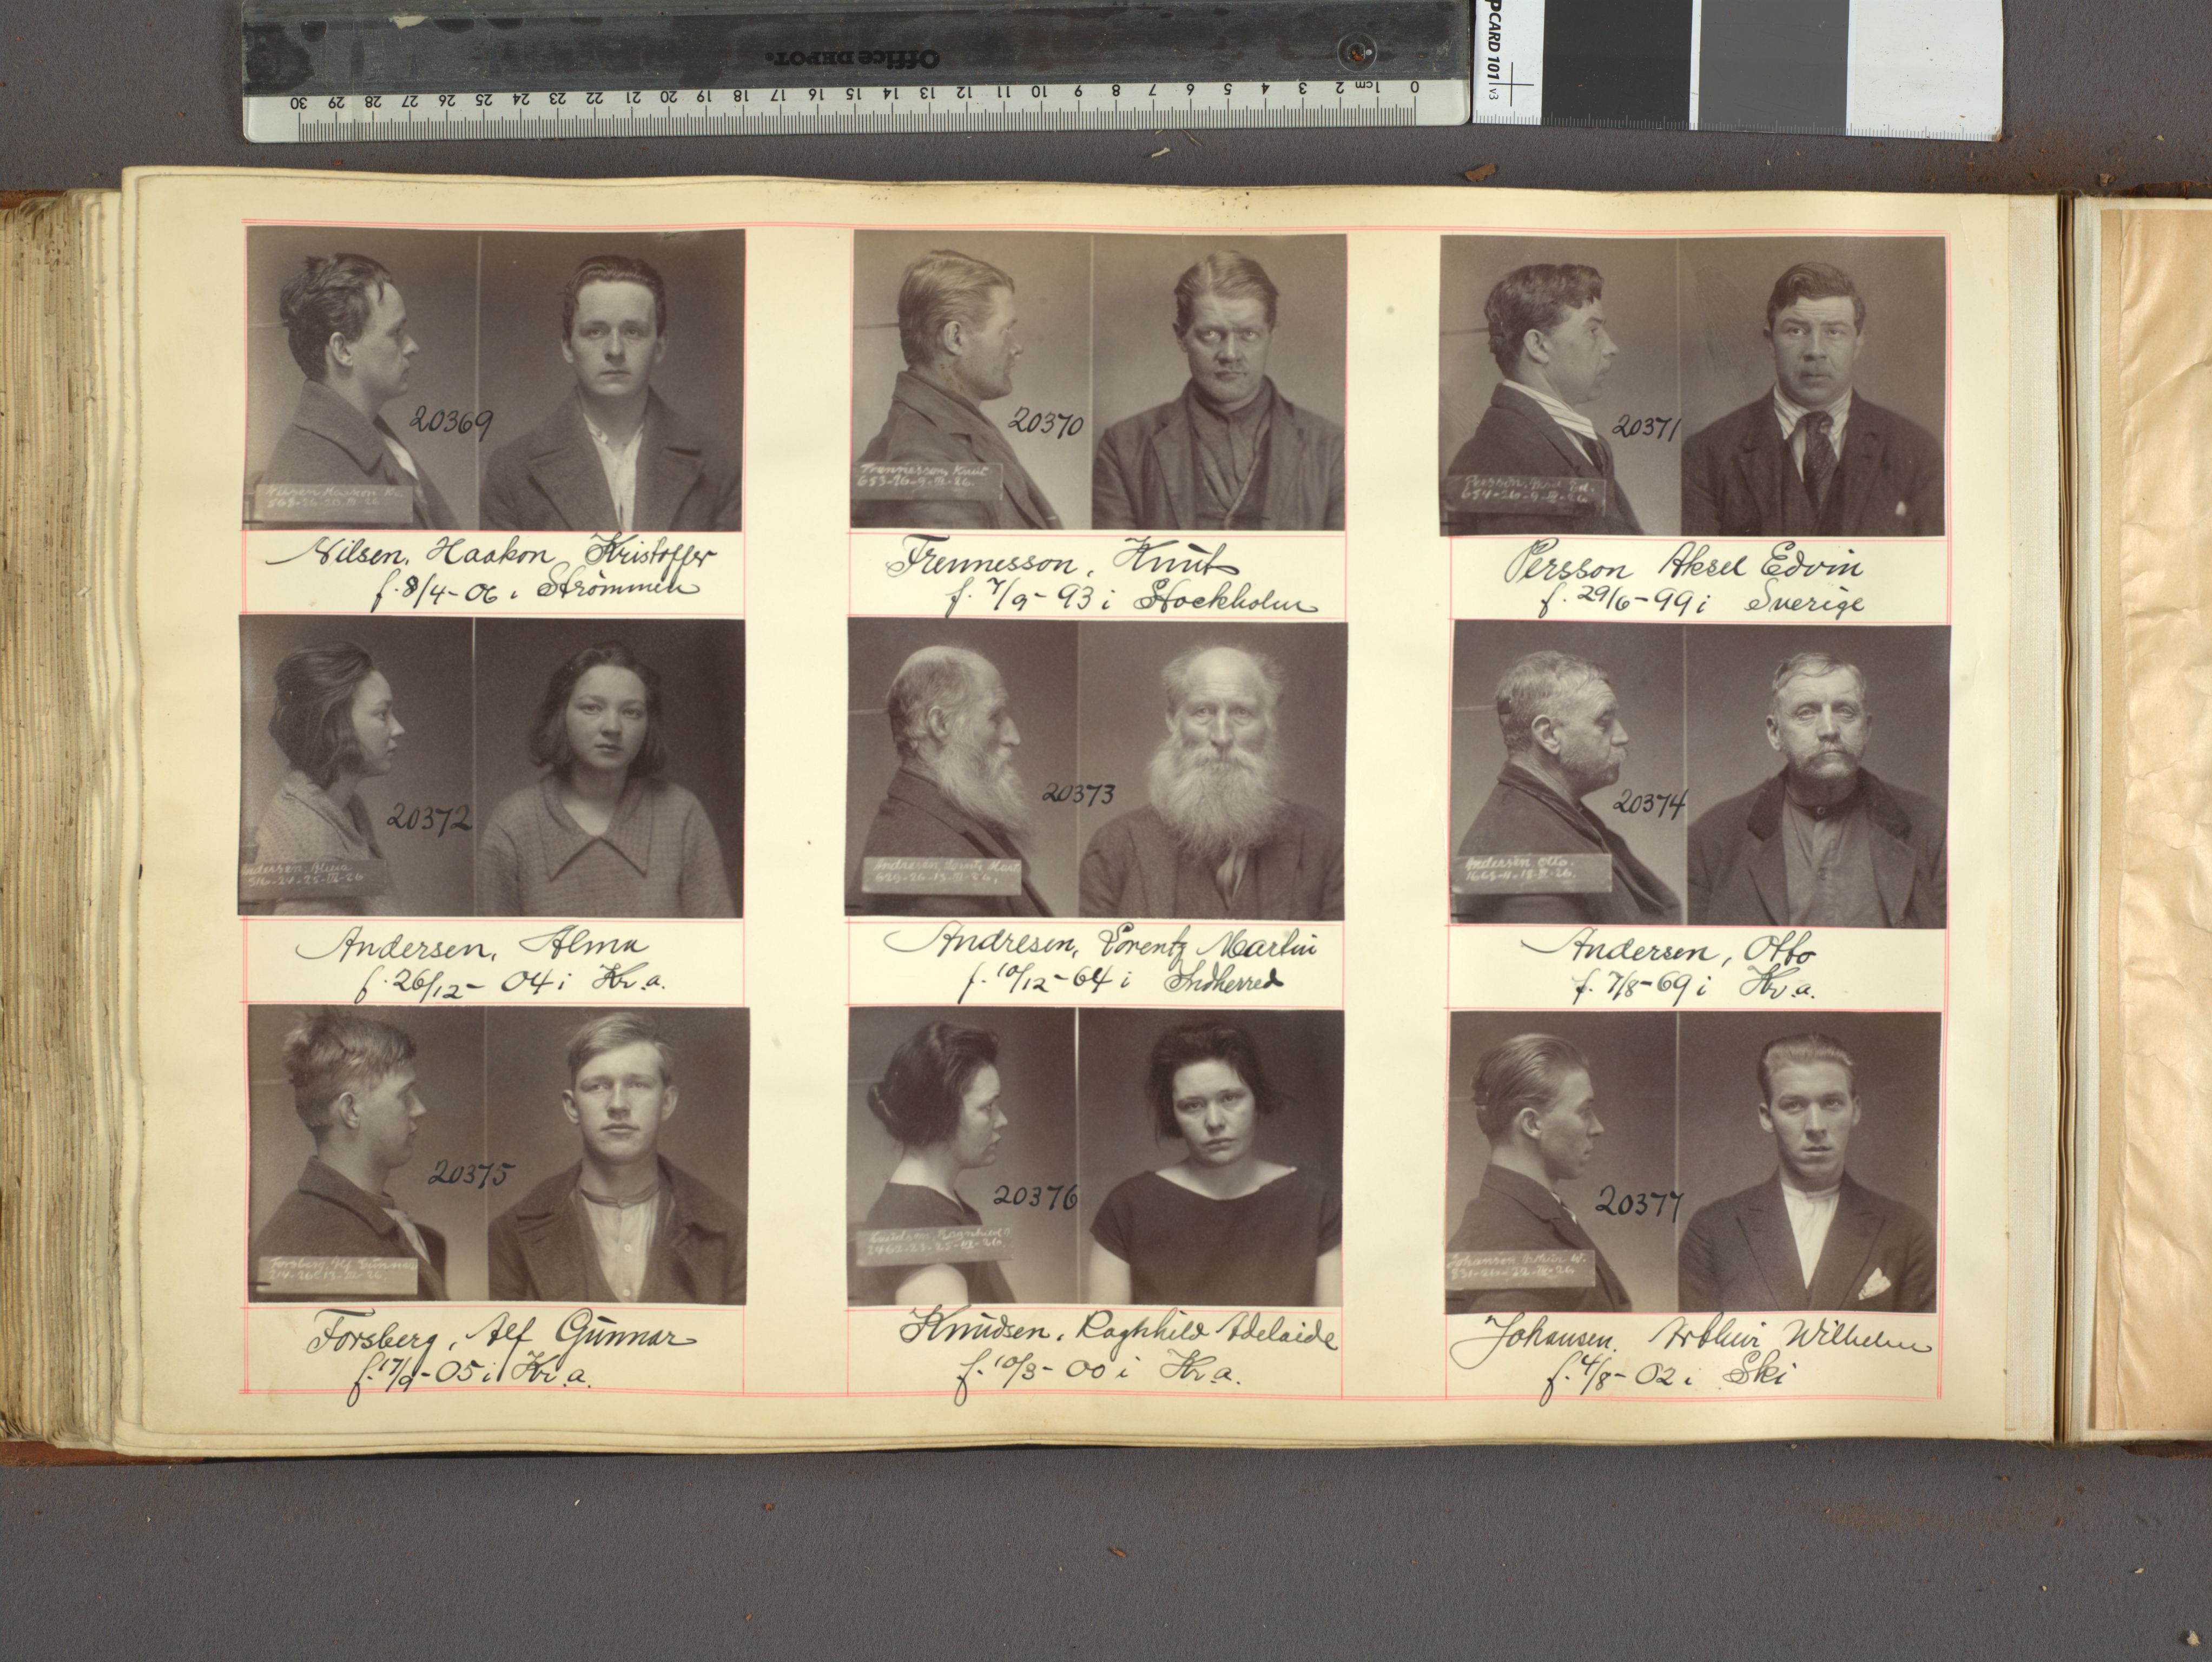 Office DEPOT.
0 1cm 2 3 4 5 6 7 8 9 10 11 12 13 14 15 16 17 18 19 20 21 22 23 24 25 26 27 28 29 30
PCARD 101 v3
20369
Nilsen Haakon Kr.
Nilsen, Haakon Kristoffer
f. 8/4-06 i Strömmen
20370
Trennesson, Knut
653-26-9-III-26.
Trennesson, Knut
f. 7/9-93 i Stockholm
20371
Persson,
654-26-9-III-26
Persson Aksel Edvin
f. 29/6-99 i Sverige
20372
Andersen, Alma
516-24-25-III-26
Andersen, Alma
f. 26/12-04 i Kr.a.
20373
Andresen, Lorentz Mart
689-26-13-III-26.
Andresen, Lorentz Martin
f. 10/12-64 i Indherred
20374
Andersen Otto.
Andersen, Otto
f. 7/8-69 i Kr.a.
20375
Forsberg, Alf Gunnar
Forsberg, Alf Gunnar
f. 17/9-05 i Kr.a.
20376
Knudsen, Ragnhild A.
2462-23-25-III-26.
Knudsen, Ragnhild Adelaide
f. 10/3-00 i Kr.a.
20377
Johansen Arthur W.
831-26-22-III-26
Johansen, Arthur Wilhelm
f. 4/8-02 i Ski